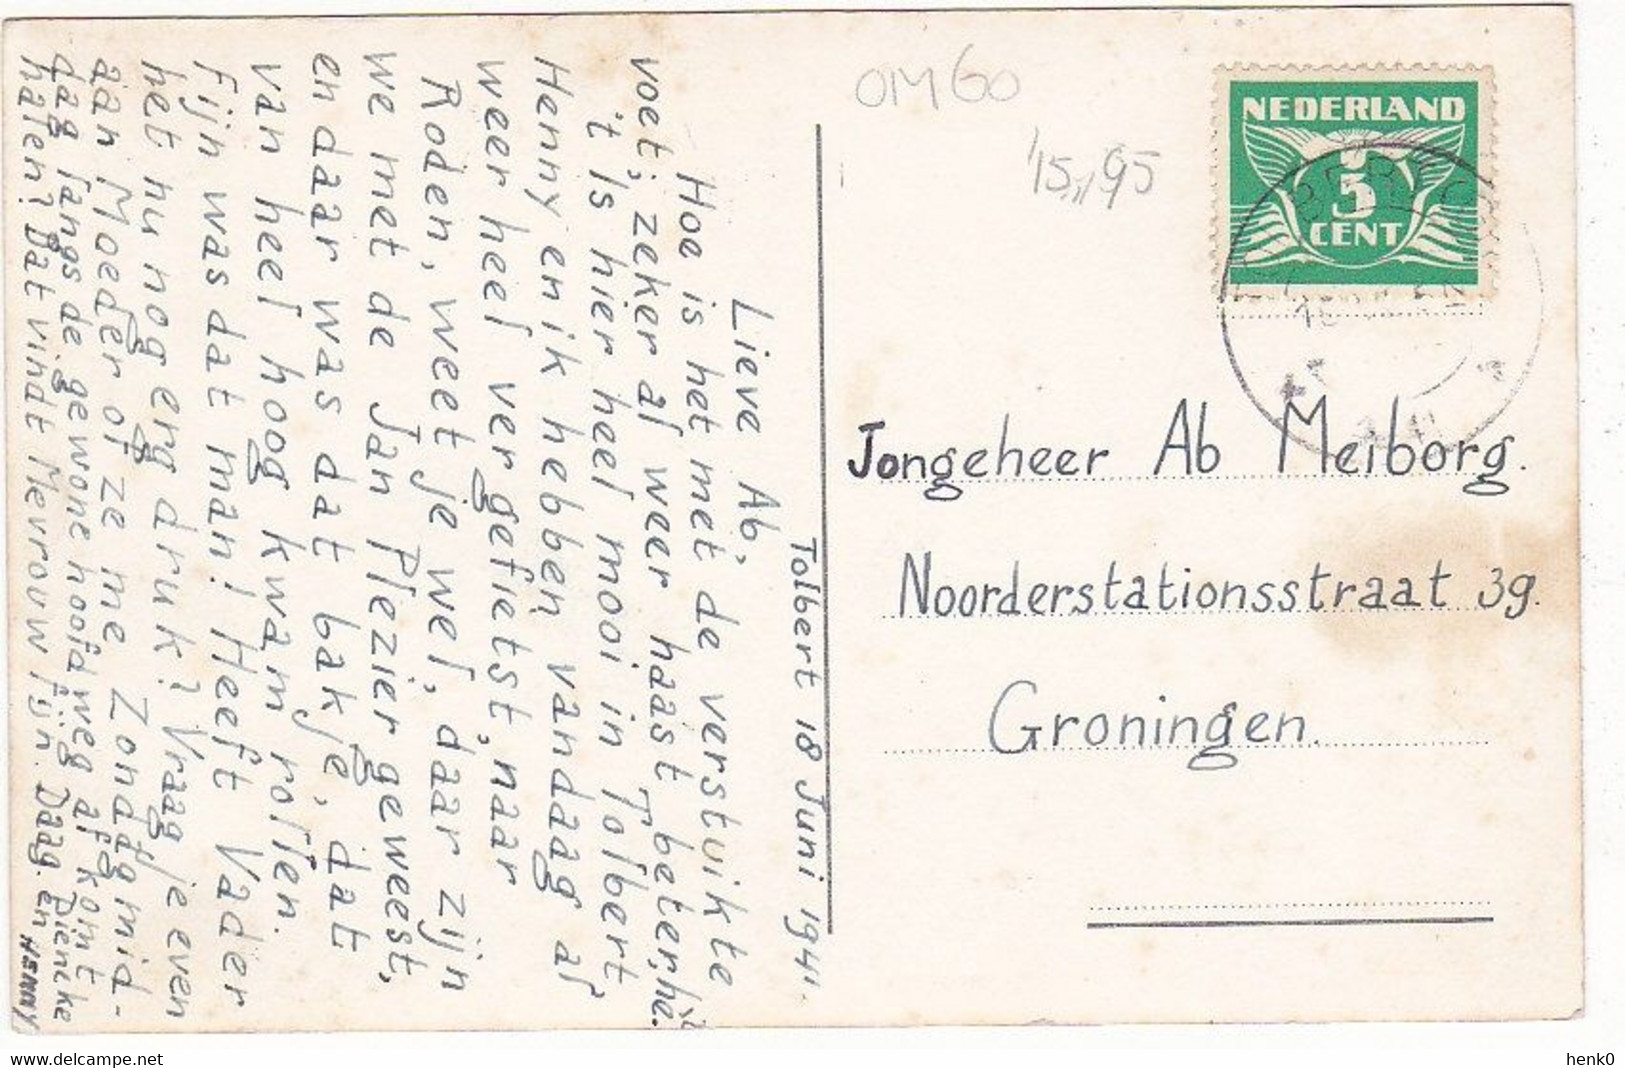 OM60
15,,95
NEDERLAND
5
CENT
Tolbert 18 Juni 1941.
Lieve Ab,
Hoe is het met de verstuikte
voet; zeker al weer haast beter, hè.
't Is hier heel mooi in Tolbert
Henny en ik hebben vandaag al
weer heel ver gefietst, naar
Roden, weet je wel, daar zijn
we met de Jan Plezier geweest,
en daar was dat bakje, dat
van heel hoog kwam rollen.
Fijn was dat man! Heeft Vader
het nu nog erg druk? Vraag je even
aan Moeder of ze me Zondagmid-
dag langs de gewone hoofdweg af komt
halen? Dat vindt Mevrouw fijn. Daag. en
Dieneke
HENNY
Jongeheer Ab Meiborg.
Noorderstationsstraat 39.
Groningen.
www.delcampe.net
henk0